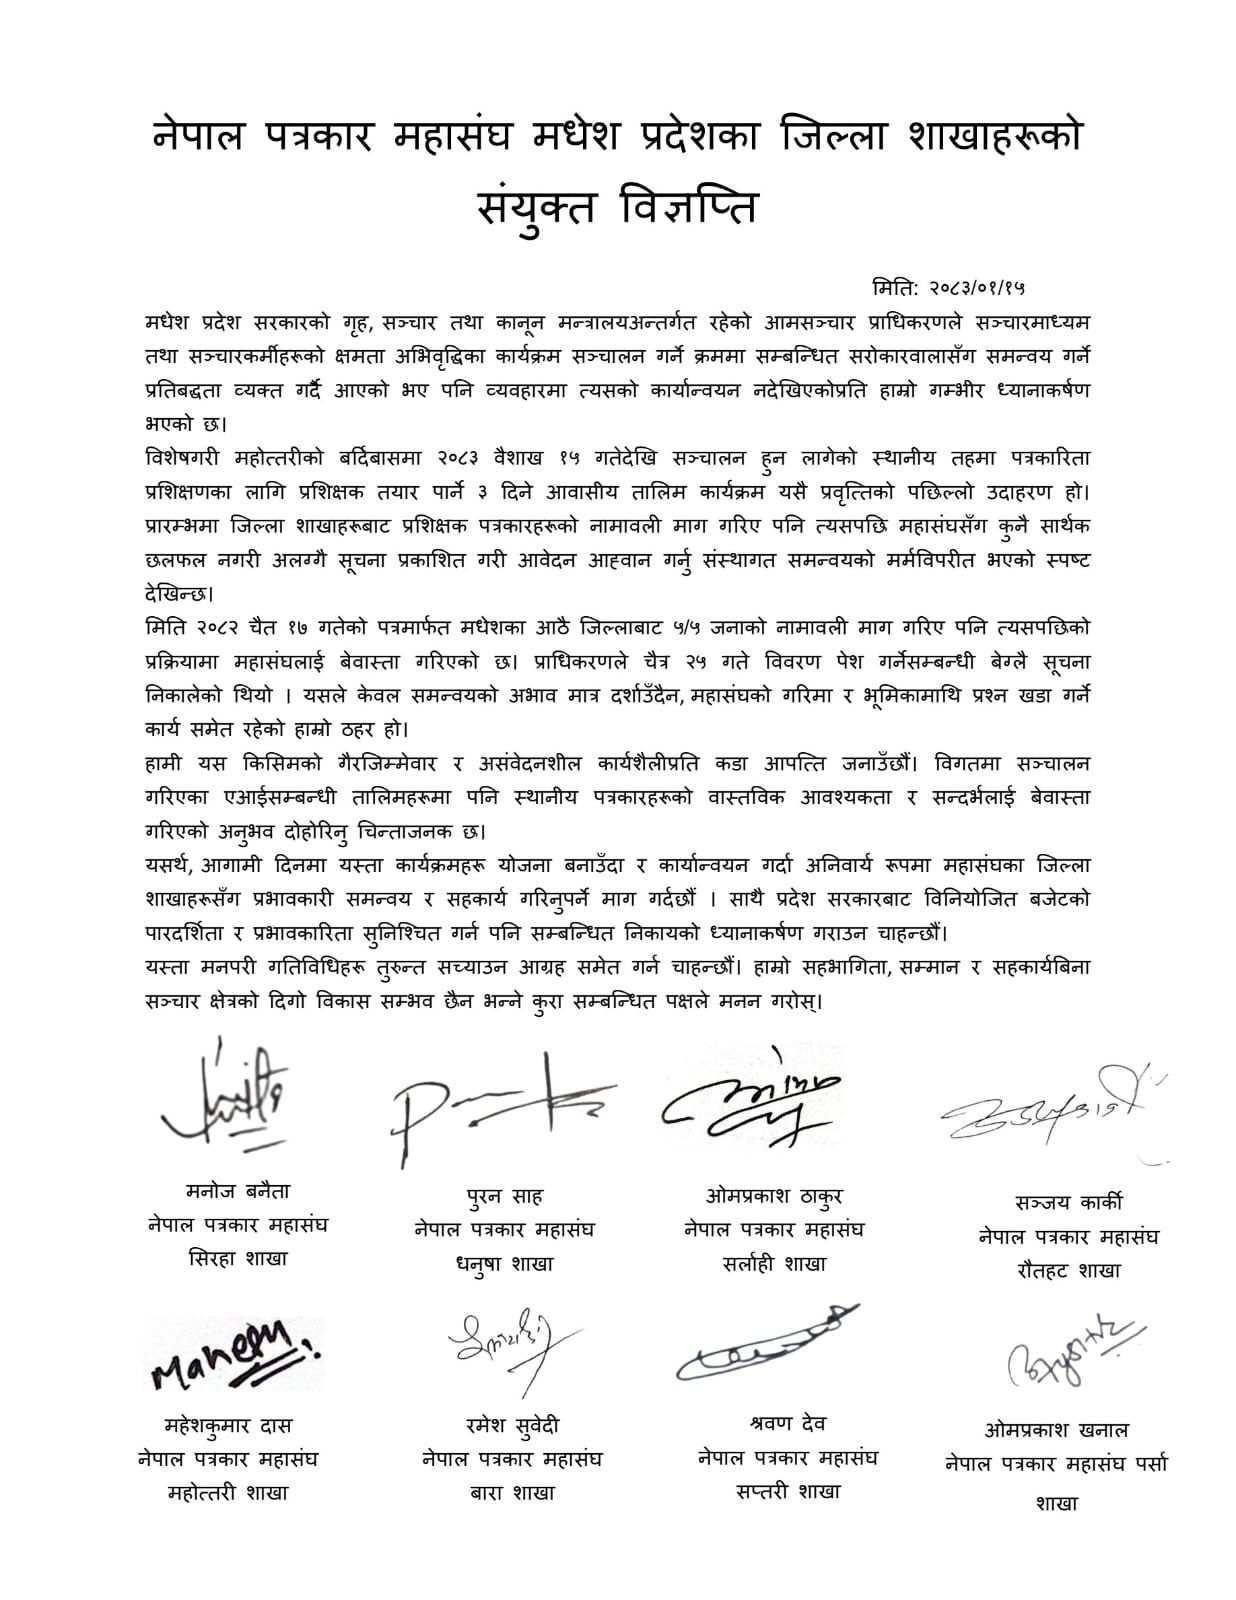 नेपाल पत्रकार महासंघ मधेश प्रदेशका जिल्ला शाखाहरूको
संयुक्त विज्ञप्ति
मिति: २०८३/०१/१५
मधेश प्रदेश सरकारको गृह, सञ्चार तथा कानून मन्त्रालयअन्तर्गत रहेको आमसञ्चार प्राधिकरणले सञ्चारमाध्यम
तथा सञ्चारकर्मीहरूको क्षमता अभिवृद्धिका कार्यक्रम सञ्चालन गर्ने क्रममा सम्बन्धित सरोकारवालासँग समन्वय गर्ने
प्रतिबद्धता व्यक्त गर्दै आएको भए पनि व्यवहारमा त्यसको कार्यान्वयन नदेखिएकोप्रति हाम्रो गम्भीर ध्यानाकर्षण
भएको छ।
विशेषगरी महोत्तरीको बर्दिबासमा २०८३ वैशाख १५ गतेदेखि सञ्चालन हुन लागेको स्थानीय तहमा पत्रकारिता
प्रशिक्षणका लागि प्रशिक्षक तयार पार्ने ३ दिने आवासीय तालिम कार्यक्रम यसै प्रवृत्तिको पछिल्लो उदाहरण हो।
प्रारम्भमा जिल्ला शाखाहरूबाट प्रशिक्षक पत्रकारहरूको नामावली माग गरिए पनि त्यसपछि महासंघसँग कुनै सार्थक
छलफल नगरी अलग्गै सूचना प्रकाशित गरी आवेदन आह्वान गर्नु संस्थागत समन्वयको मर्मविपरीत भएको स्पष्ट
देखिन्छ।
मिति २०८२ चैत १७ गतेको पत्रमार्फत मधेशका आठै जिल्लाबाट ५/५ जनाको नामावली माग गरिए पनि त्यसपछिको
प्रक्रियामा महासंघलाई बेवास्ता गरिएको छ। प्राधिकरणले चैत्र २५ गते विवरण पेश गर्नेसम्बन्धी बेग्लै सूचना
निकालेको थियो । यसले केवल समन्वयको अभाव मात्र दर्शाउँदैन, महासंघको गरिमा र भूमिकामाथि प्रश्न खडा गर्ने
कार्य समेत रहेको हाम्रो ठहर हो।
हामी यस किसिमको गैरजिम्मेवार र असंवेदनशील कार्यशैलीप्रति कडा आपत्ति जनाउँछौं। विगतमा सञ्चालन
गरिएका एआईसम्बन्धी तालिमहरूमा पनि स्थानीय पत्रकारहरूको वास्तविक आवश्यकता र सन्दर्भलाई बेवास्ता
गरिएको अनुभव दोहोरिनु चिन्ताजनक छ।
यसर्थ, आगामी दिनमा यस्ता कार्यक्रमहरू योजना बनाउँदा र कार्यान्वयन गर्दा अनिवार्य रूपमा महासंघका जिल्ला
शाखाहरूसँग प्रभावकारी समन्वय र सहकार्य गरिनुपर्ने माग गर्दछौं । साथै प्रदेश सरकारबाट विनियोजित बजेटको
पारदर्शिता र प्रभावकारिता सुनिश्चित गर्न पनि सम्बन्धित निकायको ध्यानाकर्षण गराउन चाहन्छौं।
यस्ता मनपरी गतिविधिहरू तुरुन्त सच्याउन आग्रह समेत गर्न चाहन्छौं। हाम्रो सहभागिता, सम्मान र सहकार्यबिना
सञ्चार क्षेत्रको दिगो विकास सम्भव छैन भन्ने कुरा सम्बन्धित पक्षले मनन गरोस्।
मनोज बनैता
नेपाल पत्रकार महासंघ
सिरहा शाखा
पुरन साह
नेपाल पत्रकार महासंघ
धनुषा शाखा
ओमप्रकाश ठाकुर
नेपाल पत्रकार महासंघ
सर्लाही शाखा
सञ्जय कार्की
नेपाल पत्रकार महासंघ
रौतहट शाखा
Mahesh
महेशकुमार दास
नेपाल पत्रकार महासंघ
महोत्तरी शाखा
रमेश सुवेदी
नेपाल पत्रकार महासंघ
बारा शाखा
श्रवण देव
नेपाल पत्रकार महासंघ
सप्तरी शाखा
ओमप्रकाश खनाल
नेपाल पत्रकार महासंघ पर्सा
शाखा